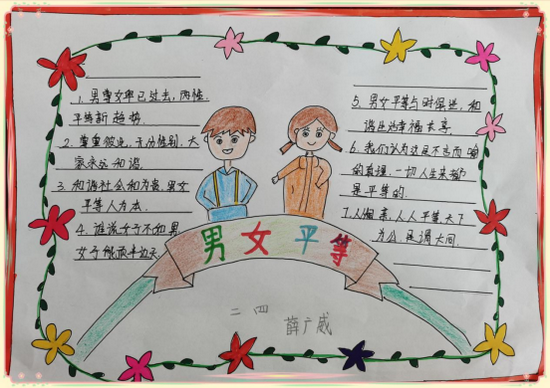 1. 男尊女卑已过去,两性
平等新趋势。
2. 尊重彼此,无分性别,大
家永远和谐。
3. 和谐社会和为贵,男女
平等人为本。
4. 谁说女子不如男
女子能顶半边天。
5. 男女平等与时俱进,和
谐生活幸福长享。
6. 我们认为这是不言而喻
的真理,一切人生来都
是平等的。
7. 人人平等天下
为公,是谓大同。
男女平等
二 四
薛广威